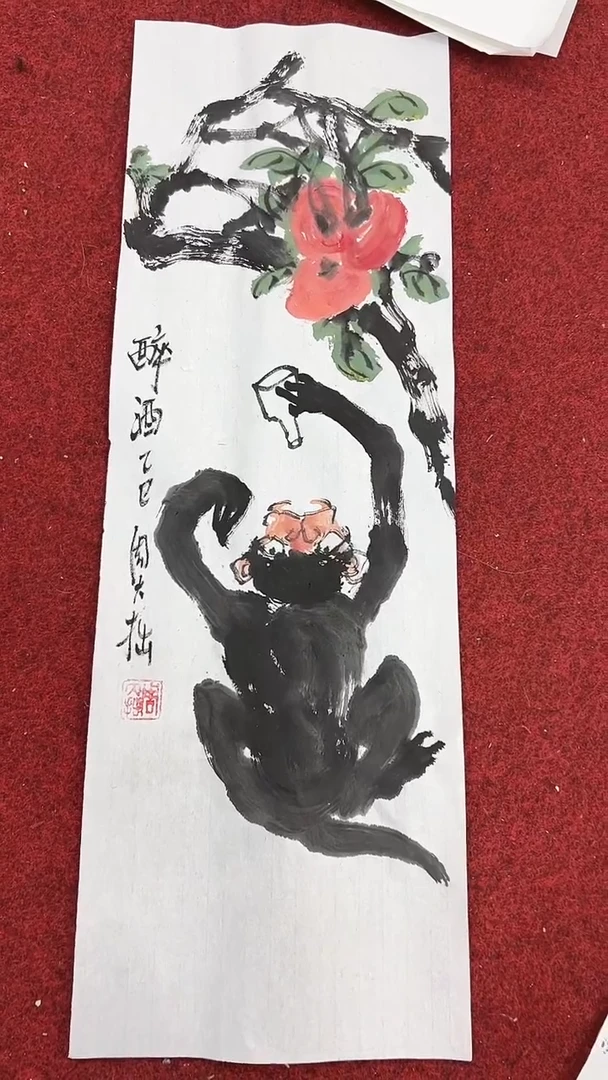 醉酒乙巳周大拙